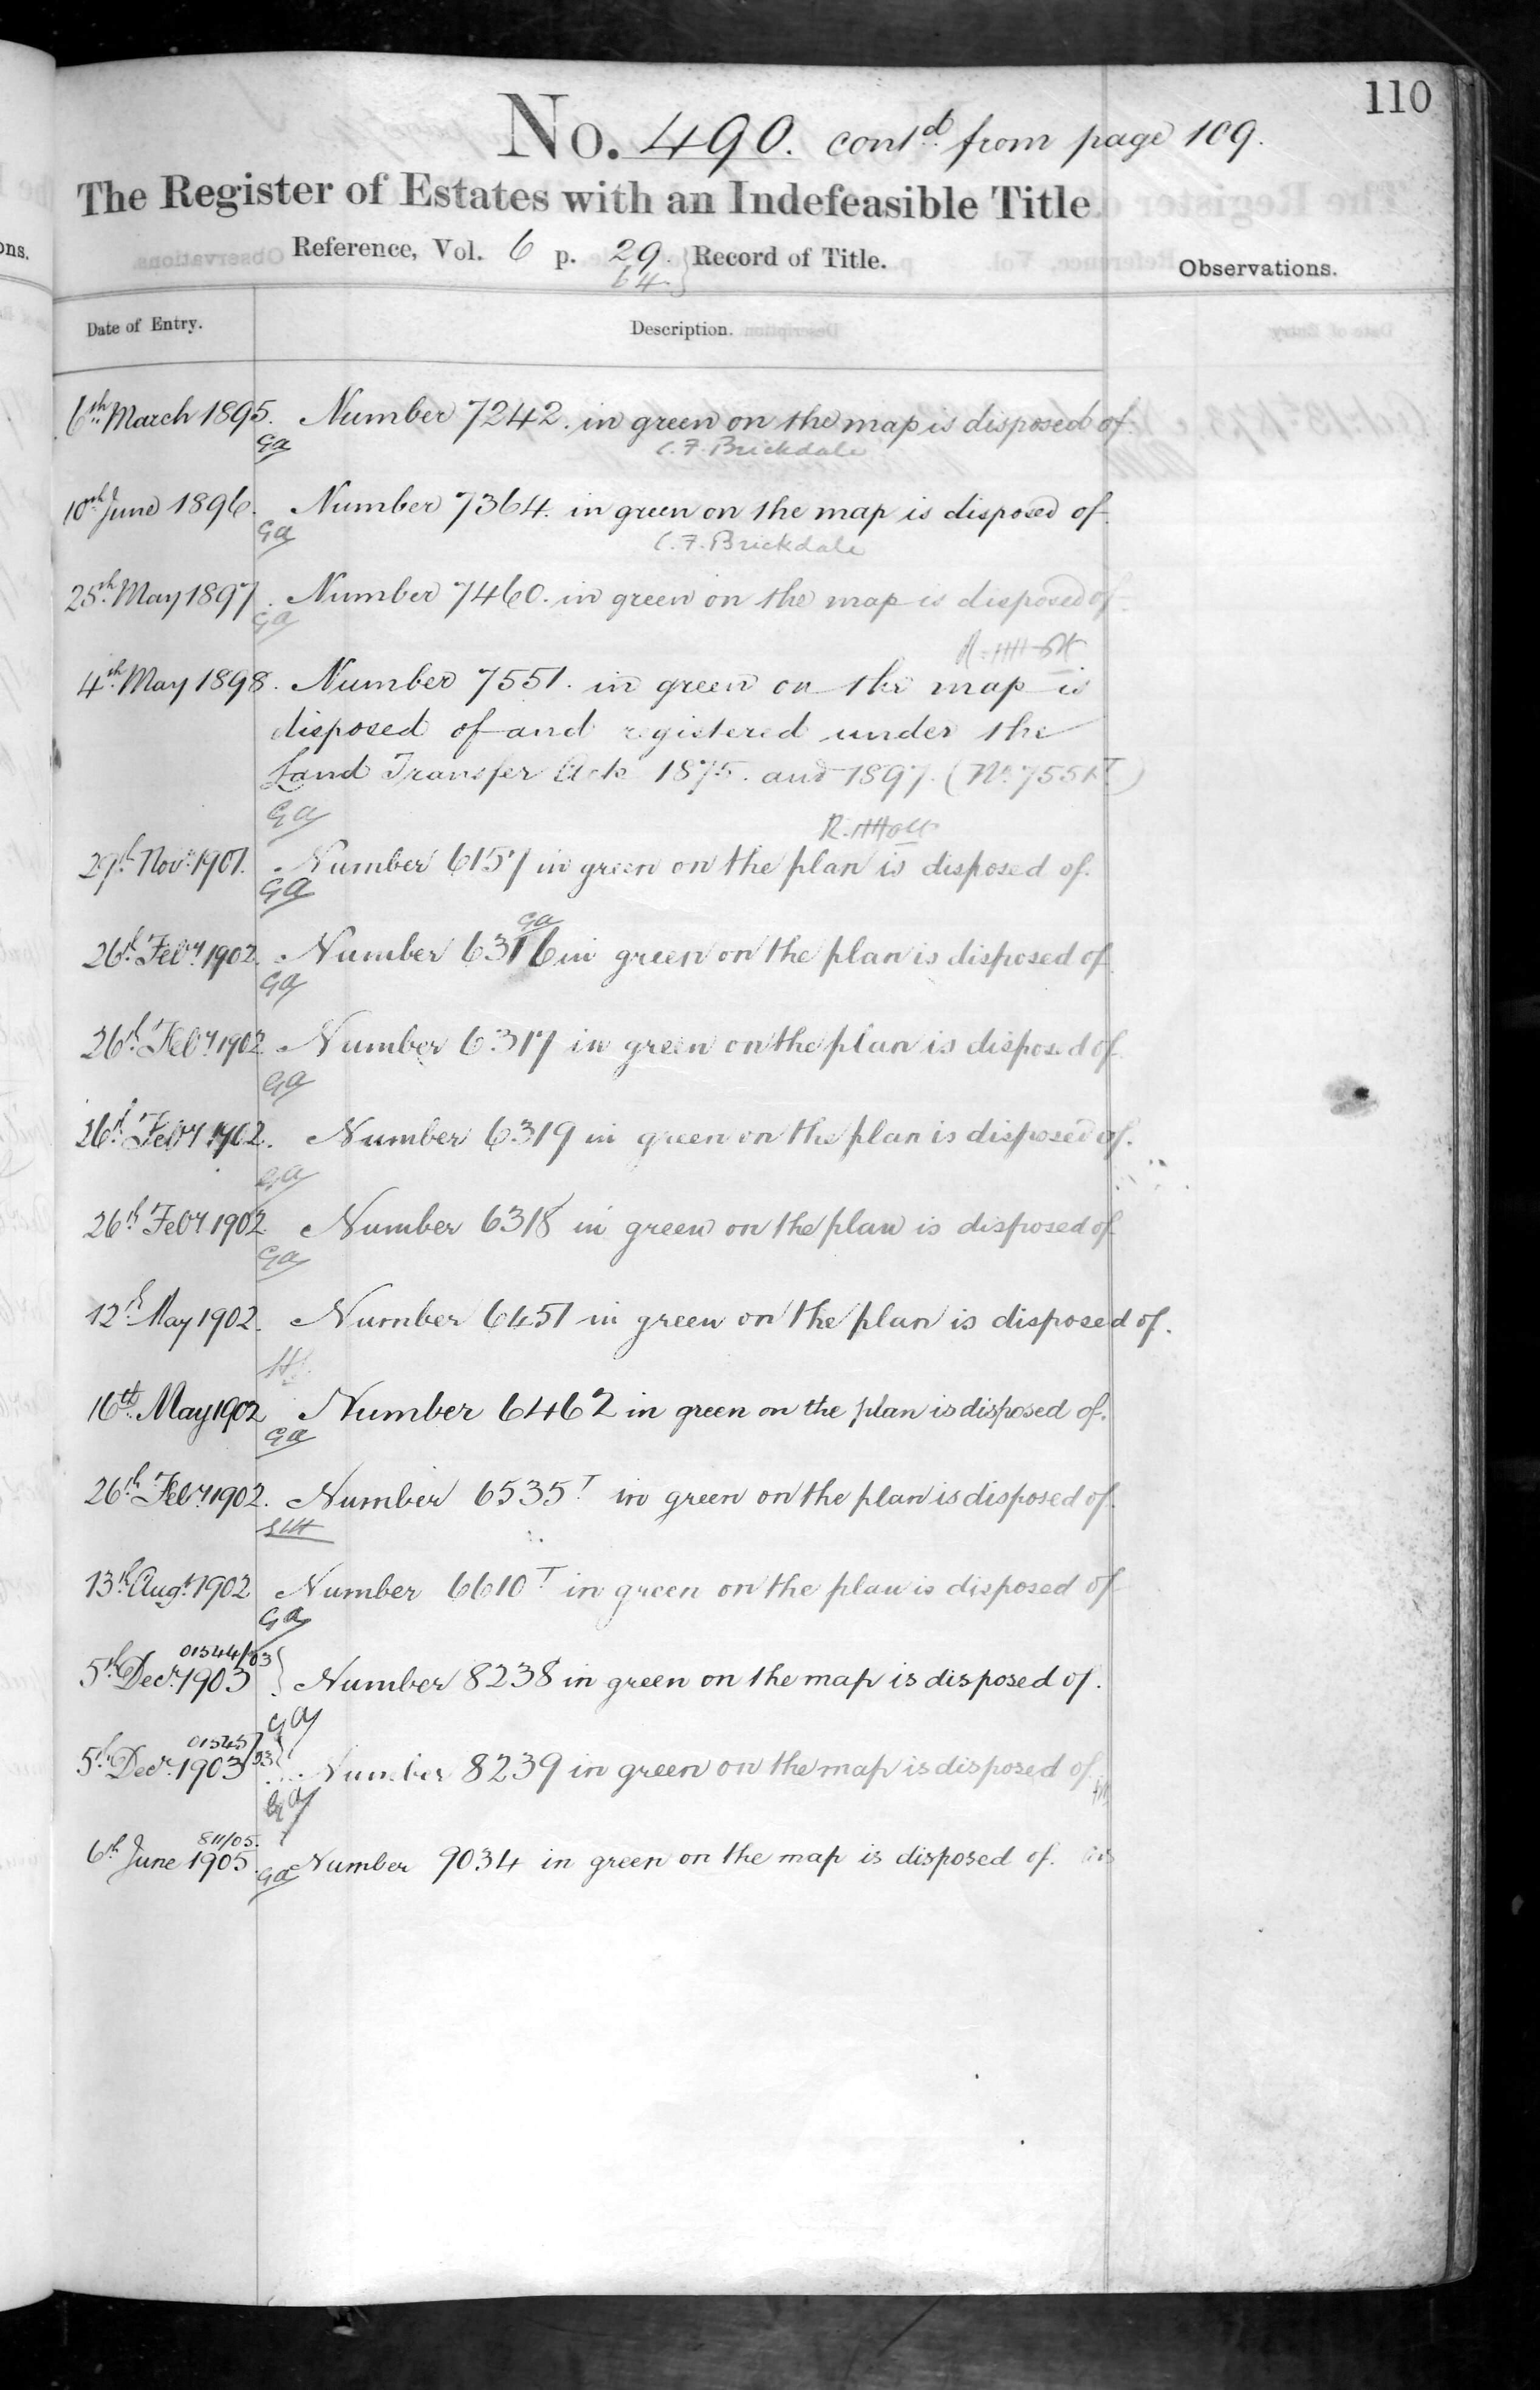 110
No. 490. cont.d from page 109.
The Register of Estates with an Indefeasible Title
Reference, Vol. 6 p. 29. } Record of Title.
64.
Observations.
Date of Entry.
Description.
6th March 1895. Number 7242. in green on the map is disposed of.
GA
C. F. Brickdale
10th June 1896. Number 7364. in green on the map is disposed of.
GA
C. F. Brickdale
25th May 1897. Number 7460. in green on the map is disposed of
GA
4th May 1898. Number 7551. in green on the map is
disposed of and registered under the
Land Transfer Acts 1875. and 1897. (No. 7551T)
GA
R. H Holt
29th Novr. 1901. Number 6157 in green on the plan is disposed of.
GA
GA
26th Feby. 1902. Number 6316 in green on the plan is disposed of
GA
26th Feby. 1902. Number 6317 in green on the plan is disposed of.
GA
26th Feby 1902. Number 6319 in green on the plan is disposed of.
GA
26th Feby 1902. Number 6318 in green on the plan is disposed of
GA
12th May 1902. Number 6451 in green on the plan is disposed of.
16th May 1902 Number 6462 in green on the plan is disposed of.
GA
26th Feby. 1902. Number 6535T in green on the plan is disposed of.
13th Augt. 1902 Number 6610T in green on the plan is disposed of
GA
01544/03
5th Decr. 1903 } Number 8238 in green on the map is disposed of.
GA
01545/03
5th Decr. 1903 } Number 8239 in green on the map is disposed of
GA
811/05.
6th June 1905. Number 9034 in green on the map is disposed of.
GA